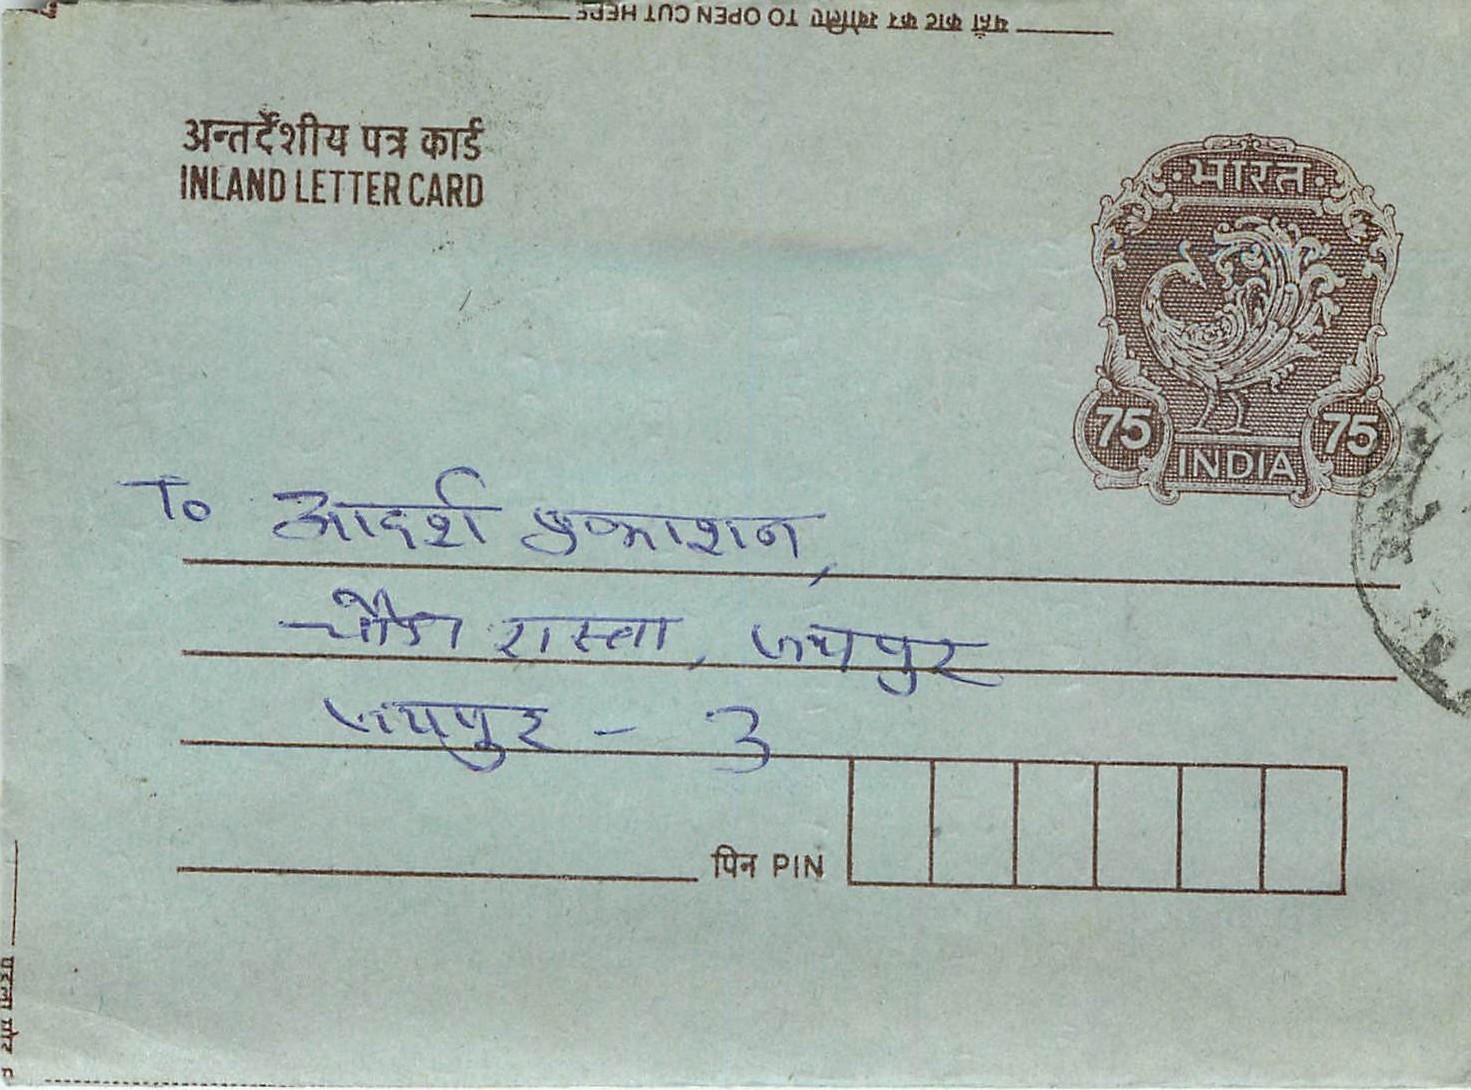 यहाँ काट कर खोलिए TO OPEN CUT HERE
अन्तर्देशीय पत्र कार्ड
INLAND LETTER CARD
भारत
75 75
INDIA
To आदर्श प्रकाशन,
चौड़ा रास्ता, जयपुर
जयपुर - 3
पिन PIN